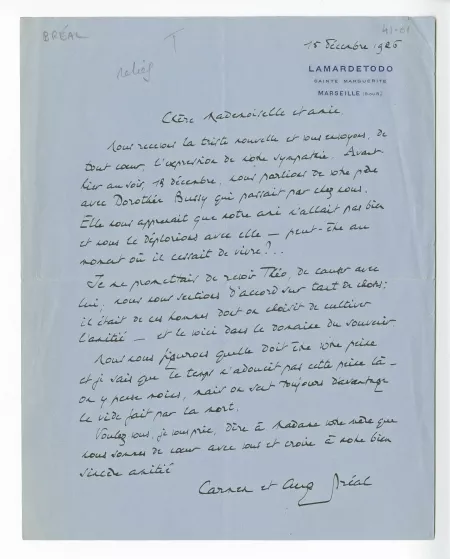 BRÉAL
41-01
reliés
15 décembre 1926
LAMARDETODO
SAINTE MARGUERITE
MARSEILLE
Chère Mademoiselle et amie,
Nous recevons la triste nouvelle et vous envoyons, de
tout cœur, l'expression de notre sympathie. Avant
hier au soir, 13 décembre, nous parlions de votre père
avec Dorothée Bussy qui passait par chez nous.
Elle nous apprenait que notre ami n'allait pas bien
et nous le déplorions avec elle — peut-être au
moment où il cessait de vivre ?..
Je me promettais de revoir Théo, de causer avec
lui, nous nous sentions d'accord sur tant de choses;
il était de ces hommes dont on choisit de cultiver
l'amitié — et le voici dans le domaine du souvenir.
Nous nous figurons quelle doit être votre peine
et je sais que le temps n'adoucit pas cette peine là —
on y pense moins, mais on sent toujours davantage
le vide fait par la mort.
Voulez vous, je vous prie, dire à Madame votre mère que
nous sommes de cœur avec vous et croire à notre bien
sincère amitié
Carmen et Aug Bréal